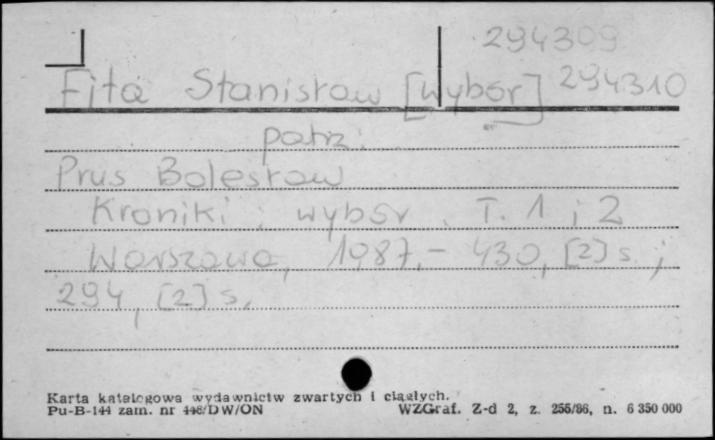 294309
Fita Stanisław [wybór] 294310
patrz:
Prus Bolesław
Kroniki : wybór. T. 1 i 2
Warszawa, 1987.- 430, [2] s. ;
294, [2] s.
Karta katalogowa wydawnictw zwartych i ciągłych.
Pu-B-144 zam. nr 448/DW/ON WZGraf. Z-d 2, z. 255/86, n. 6 350 000